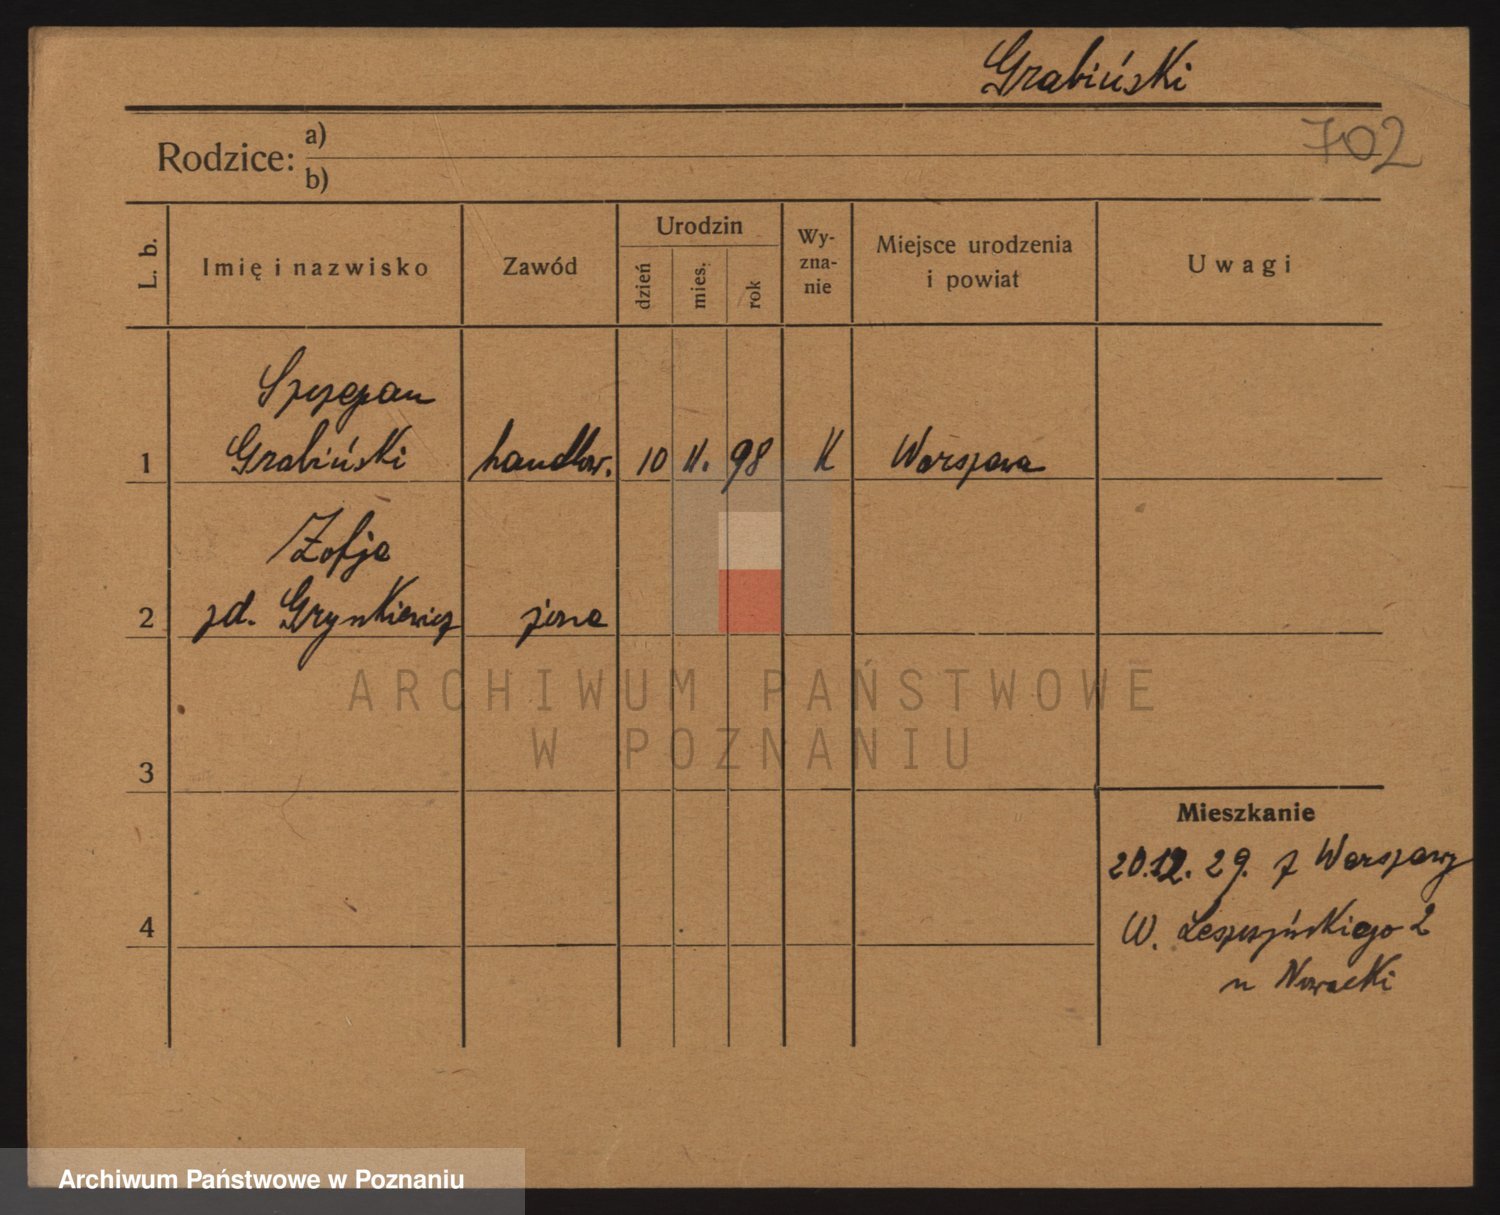 Grabiński
702
Rodzice: a)
b)
L. b.
Imię i nazwisko
Zawód
Urodzin
dzień
mies.
rok
Wy-
zna-
nie
Miejsce urodzenia
i powiat
Uwagi
Szczepan
1 Grabiński handlow. 10 II. 98 K Warszawa
Zofja
2 zd. Grynkiewicz żona
3
4
Mieszkanie
20.12. 29. z Warszawy
W. Leszczyńskiego 2
u Nowacki
ARCHIWUM PAŃSTWOWE
W POZNANIU
Archiwum Państwowe w Poznaniu